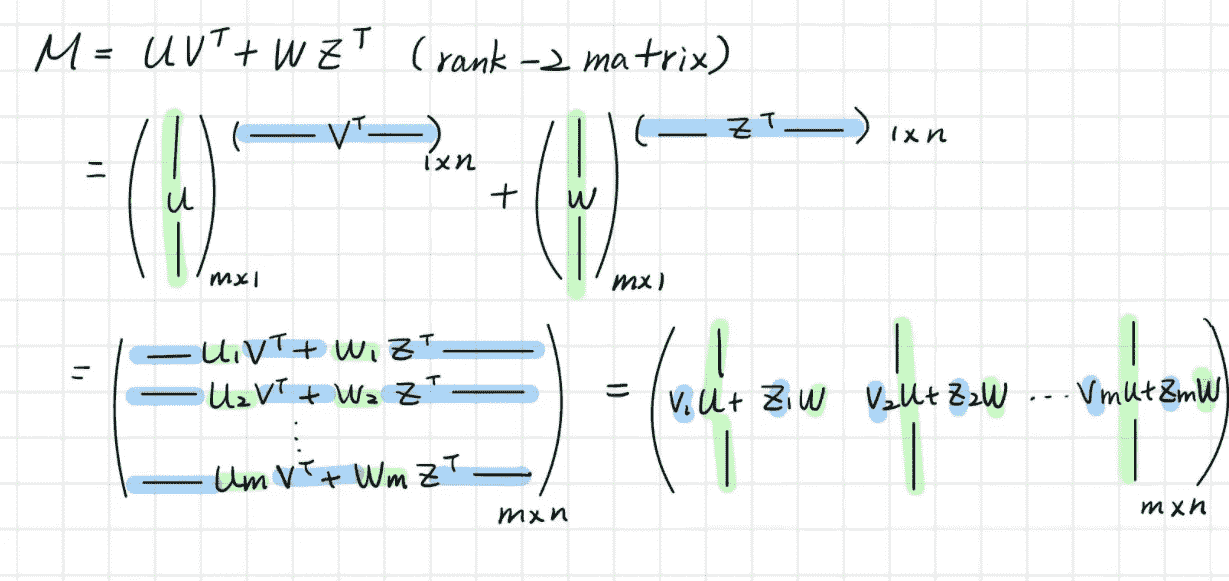 M = UVᵀ + WZᵀ (rank-2 matrix)
= ( | U | )m×1 (— Vᵀ —)1×n + ( | W | )m×1 (— Zᵀ —) 1×n
= ( — U₁Vᵀ + W₁Zᵀ —
— U₂Vᵀ + W₂Zᵀ —
⋮
— UmVᵀ + WmZᵀ — )m×n
= ( V₁U + Z₁W V₂U + Z₂W ... VmU + ZmW )m×n